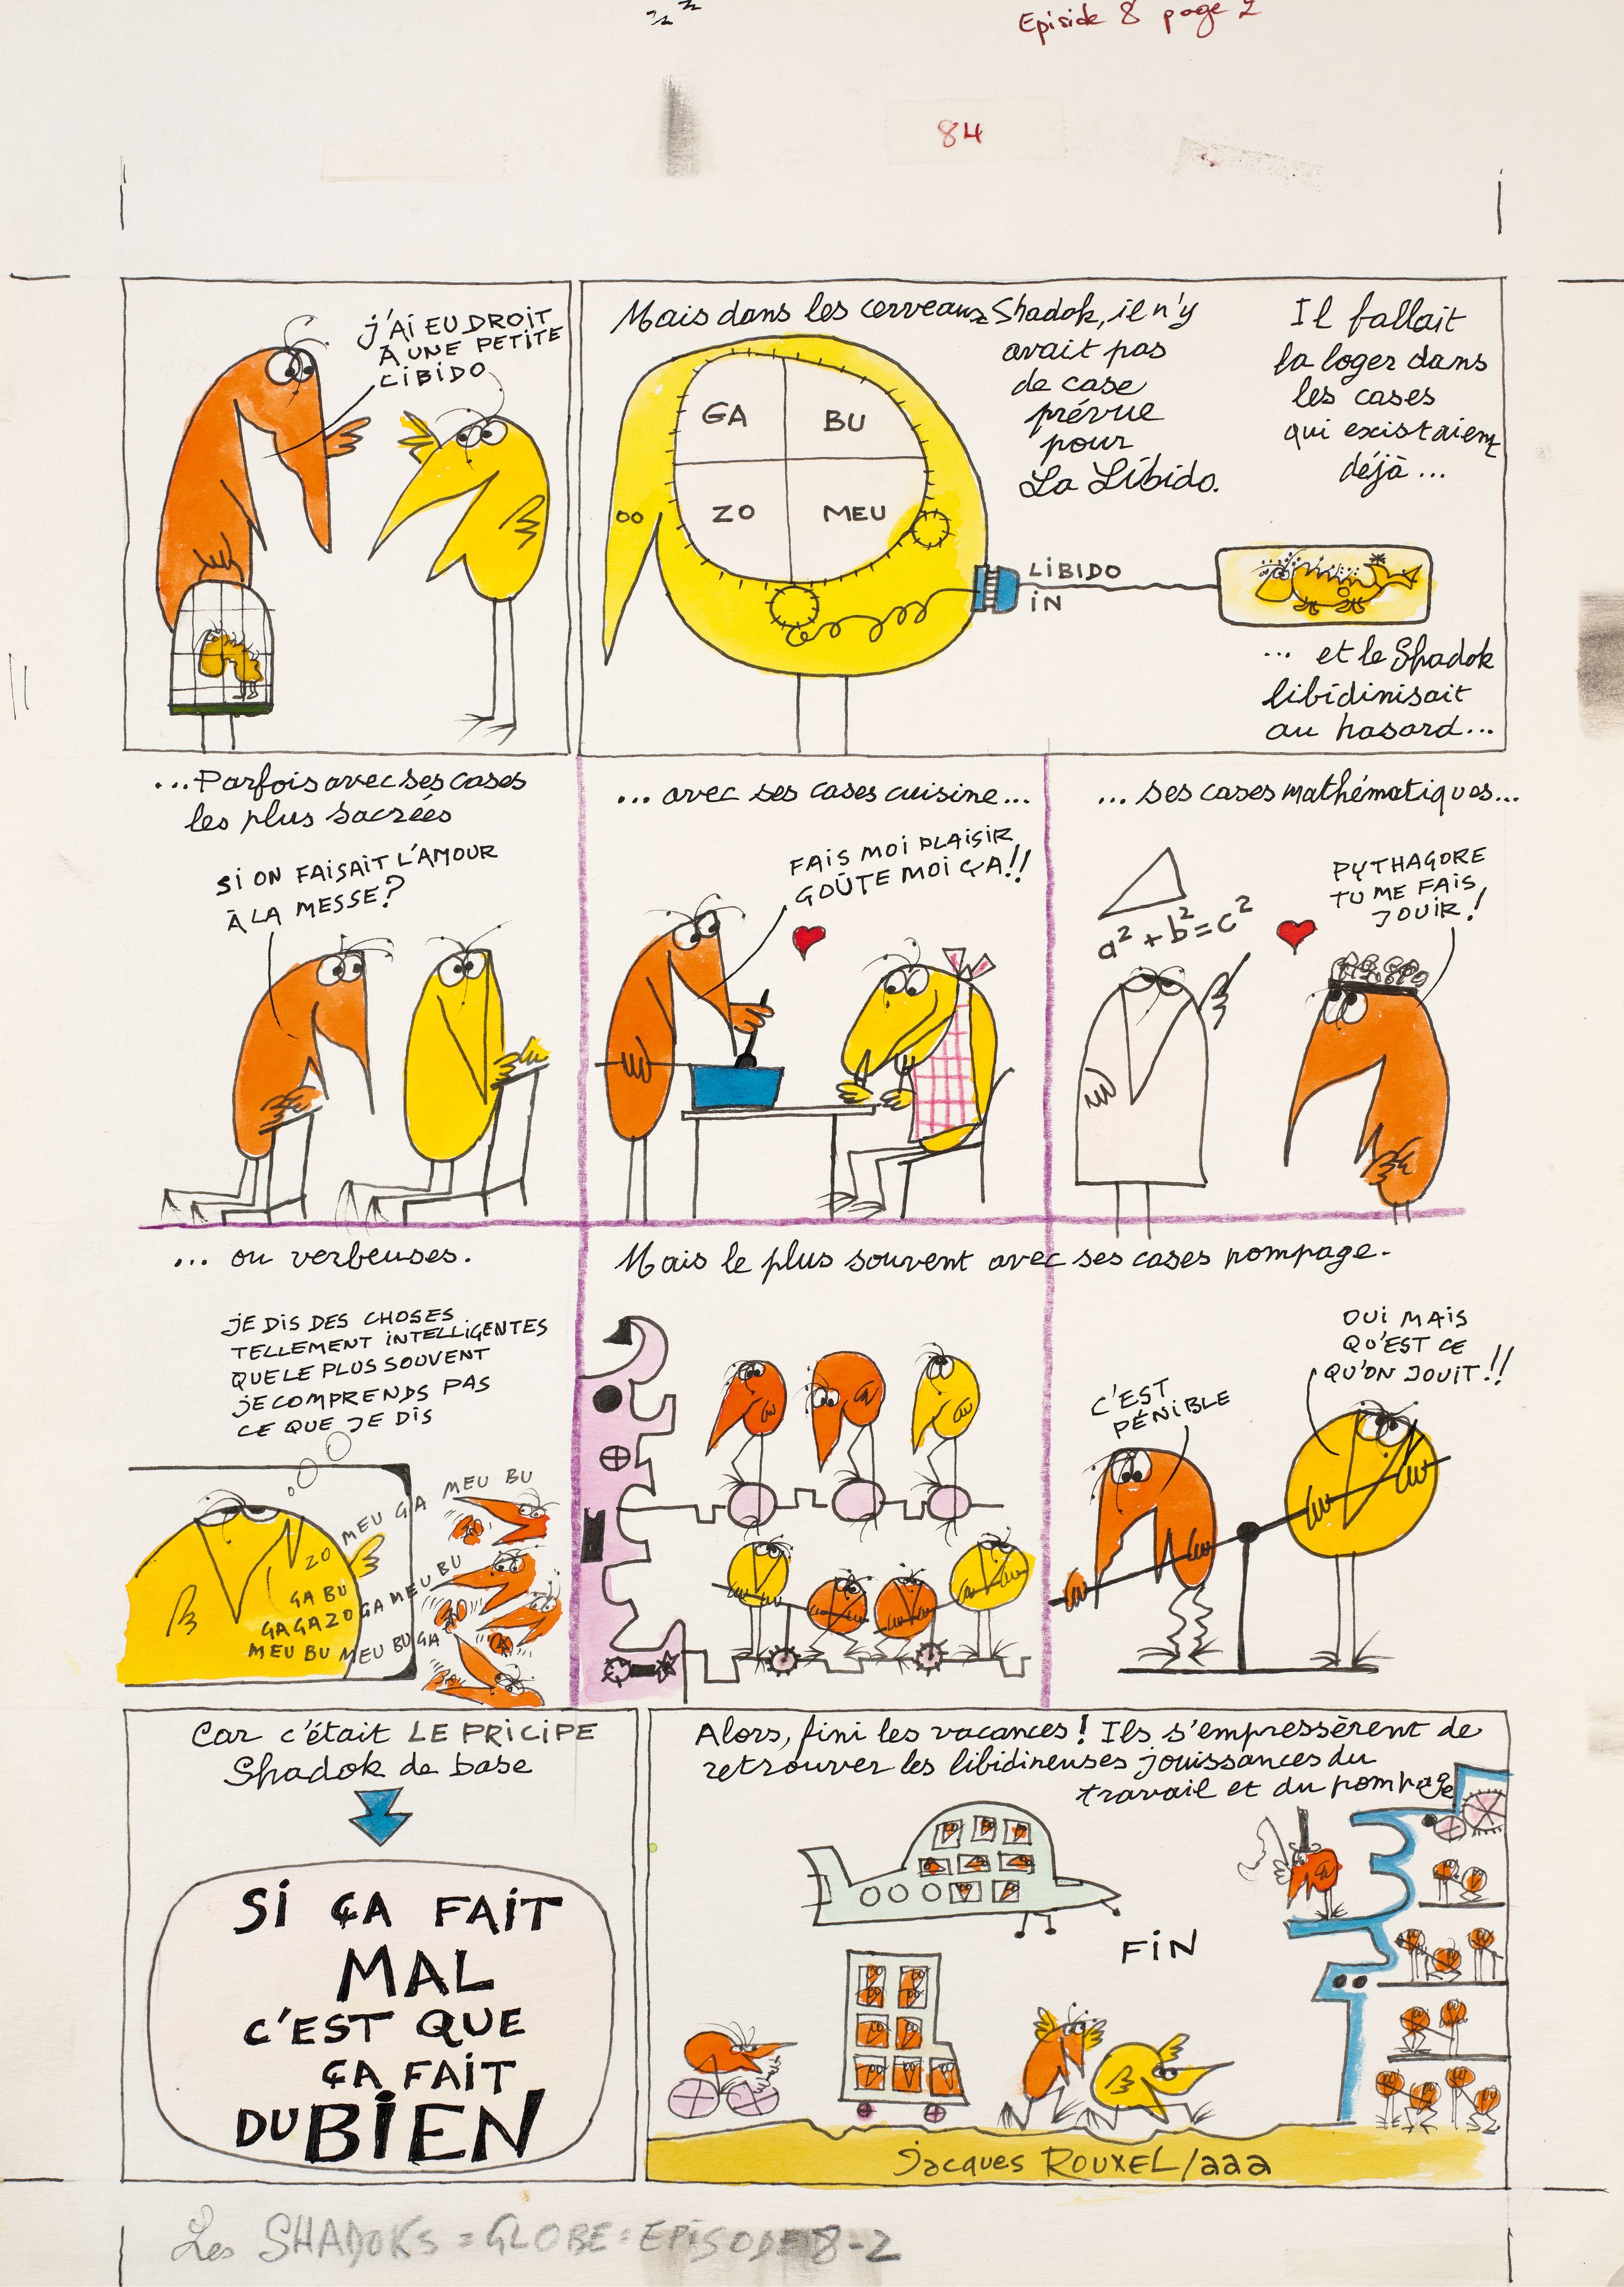 Episide 8 page 2
84
J'AI EU DROIT
À UNE PETITE
LIBIDO
Mais dans les cerveaux Shadok, il n'y
avait pas
de case
prévue
pour
La Libido.
Il fallait
la loger dans
les cases
qui existaient
déjà ...
GA
BU
ZO
MEU
LIBIDO
IN
... et le Shadok
libidinisait
au hasard...
...Parfois avec ses cases
les plus sacrées
SI ON FAISAIT L'AMOUR
À LA MESSE?
... avec ses cases cuisine...
FAIS MOI PLAISIR
GOÛTE MOI ÇA!!
... ses cases mathématiques...
a²+b²=c²
PYTHAGORE
TU ME FAIS
JOUIR!
... ou verbeuses.
JE DIS DES CHOSES
TELLEMENT INTELLIGENTES
QUE LE PLUS SOUVENT
JE COMPRENDS PAS
CE QUE JE DIS
ZO MEU GA MEU BU
GA BU
GA GA ZO GA MEU BU
MEU BU MEU BU GA
Mais le plus souvent avec ses cases pompage.
C'EST
PÉNIBLE
OUI MAIS
QU'EST CE
QU'ON JOUIT!!
Car c'était LE PRICIPE
Shadok de base
SI ÇA FAIT
MAL
C'EST QUE
ÇA FAIT
DU BIEN
Alors, fini les vacances! Ils s'empressèrent de
retrouver les libidineuses jouissances du
travail et du pompage
FIN
Jacques ROUXEL/aaa
Les SHADOKS = GLOBE = EPISODE 8-2